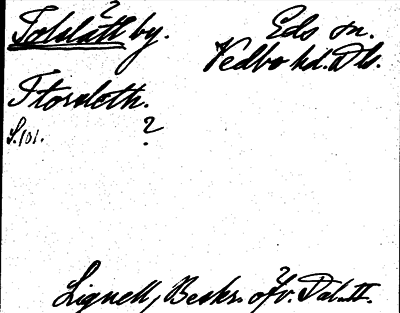 Tolslätt by. Eds sn.
Vedbo hd. Dls.
Ttorsloth.
S. 101. ?
Lignell, Beskr. öfv. Dal. II.